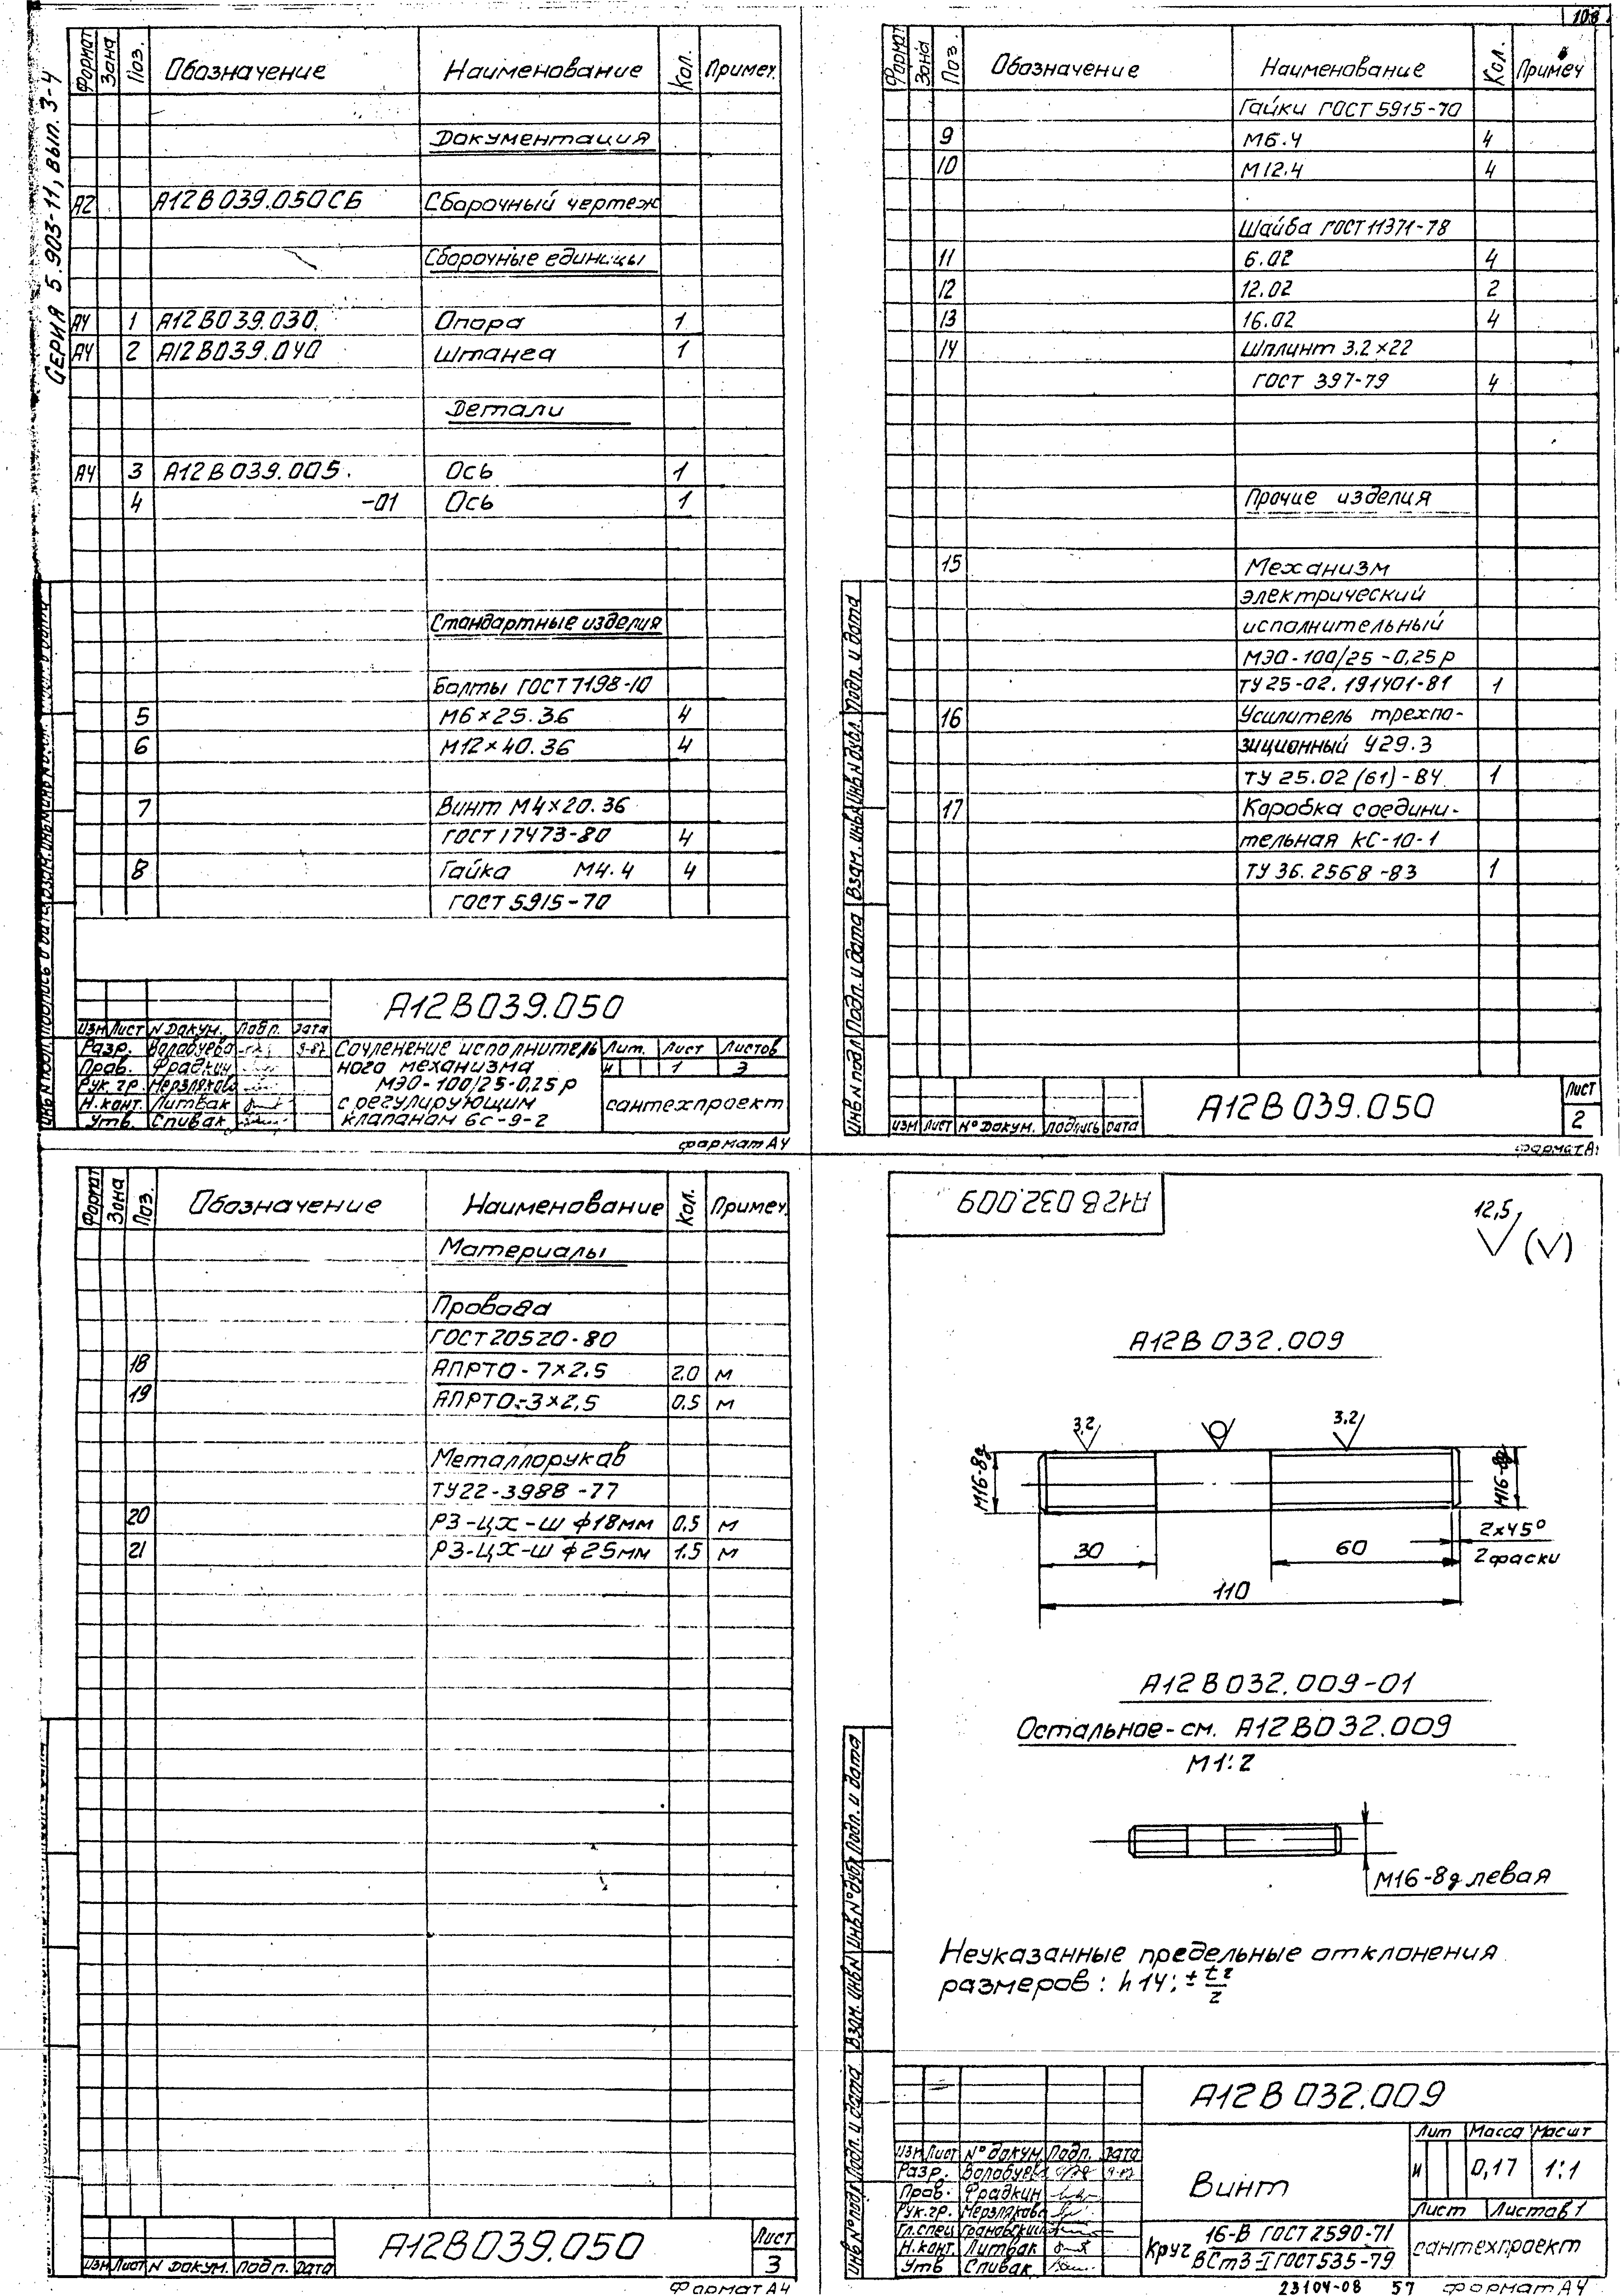 108
СЕРИЯ 5.903-11, вып. 3-4
Формат Зона Поз. Обозначение Наименование Кол. Примеч.
Документация
А2 А12В039.050СБ Сборочный чертеж
Сборочные единицы
А4 1 А12В039.030 Опора 1
А4 2 А12В039.040 Штанга 1
Детали
А4 3 А12В039.005. Ось 1
4 -01 Ось 1
Стандартные изделия
Болты ГОСТ 7198-10
5 М6×25.36 4
6 М12×40.36 4
7 Винт М4×20.36
ГОСТ 17473-80 4
8 Гайка М4.4 4
ГОСТ 5915-70
А12В039.050
Изм Лист N Докум. Подп. Дата
Разр. Волобуева 9-87
Пров. Фрадкин
Рук. гр. Мерзлякова
Н.конт. Литвак
Утв. Спивак
Сочленение исполнитель
ного механизма
МЭО-100/25-0,25р
с регулирующим
клапаном 6с-9-2
Лит. Лист Листов
И 1 3
сантехпроект
формат А4
Формат Зона Поз. Обозначение Наименование Кол. Примеч
Гайки ГОСТ 5915-70
9 М6.4 4
10 М12.4 4
Шайба ГОСТ 11371-78
11 6.02 4
12 12.02 2
13 16.02 4
14 Шплинт 3.2×22
ГОСТ 397-79 4
Прочие изделия
15 Механизм
электрический
исполнительный
МЭО-100/25-0,25р
ТУ 25-02.191401-81 1
16 Усилитель трехпо-
зиционный У29.3
ТУ 25.02 (61)-84 1
17 Коробка соедини-
тельная КС-10-1
ТУ 36.2568-83 1
Инв N подл Подп. и дата Взам. инв N Инв N дубл. Подп. и дата
Изм Лист N° Докум. Подпись Дата
А12В039.050
Лист
2
формат А4
Формат Зона Поз. Обозначение Наименование Кол. Примеч.
Материалы
Провода
ГОСТ 20520-80
18 АПРТО-7×2.5 2.0 м
19 АПРТО-3×2,5 0.5 м
Металлорукав
ТУ22-3988-77
20 РЗ-ЦХ-Ш ф18мм 0.5 м
21 РЗ-ЦХ-Ш ф25мм 1.5 м
Изм Лист N Докум. Подп. Дата
А12В039.050
Лист
3
Формат А4
А12В032.009
12,5 (√)
А12В032.009
3,2 3,2
М16-8g М16-8g
30 60 2×45°
2 фаски
110
А12В032.009-01
Остальное-см. А12В032.009
М1:2
М16-8g левая
Неуказанные предельные отклонения
размеров: h14; ± t2/2
Инв N° подл Подп. и дата Взам. инв N Инв N° дубл Подп. и дата
А12В032.009
Изм Лист N° докум. Подп. Дата
Разр. Волобуева 9-87
Пров. Фрадкин
Рук.гр. Мерзлякова
Гл.спец Грановский
Н.конт. Литвак
Утв Спивак
Винт
Лит Масса Масшт
И 0,17 1:1
Лист Листов 1
Круг 16-В ГОСТ 2590-71
ВСт3-I ГОСТ 535-79
сантехпроект
23104-08 57 Формат А4